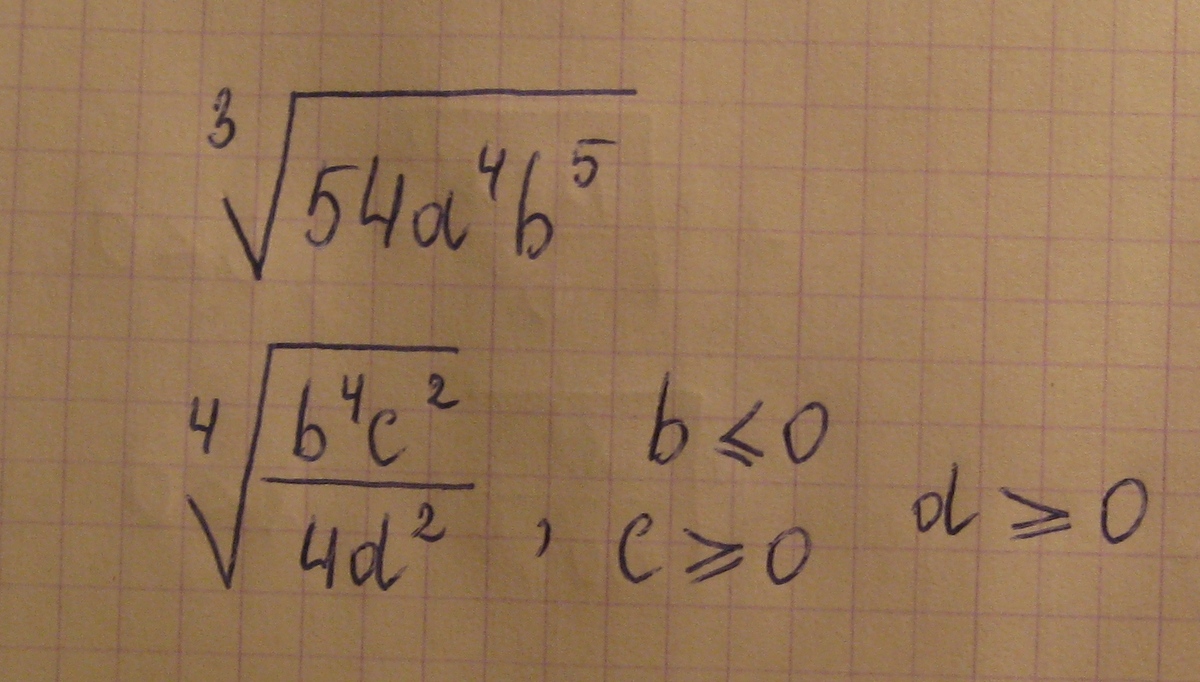 ∛(54a⁴b⁵)
∜(b⁴c² / 4d²), b ⩽ 0
c ⩾ 0 d ⩾ 0